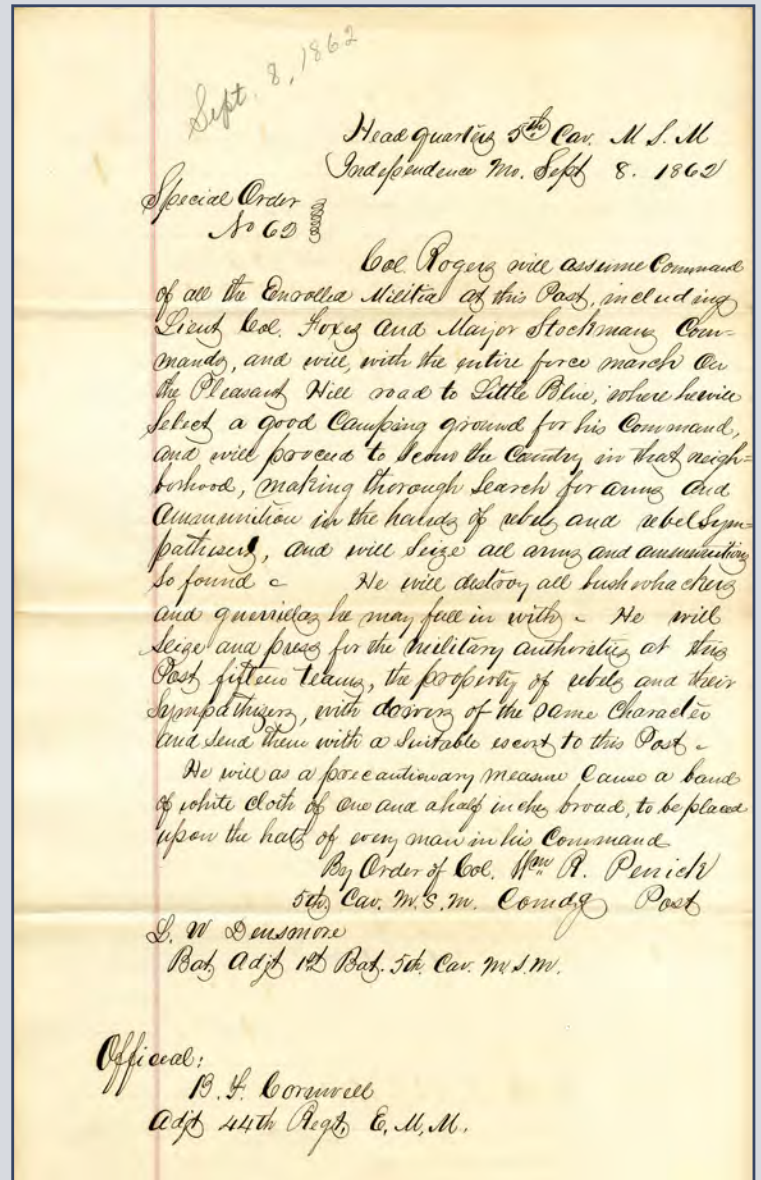 Sept. 8, 1862
Head Quarters 5th Cav. M S. M
Independence Mo. Sept 8. 1862
Special Order
No 62
Col. Rogers will assume Command
of all the Enrolled Militia at this Post, including
Lieut Col. Foxes and Major Stockmans Com-
mands, and will, with the entire force march on
the Pleasant Hill road to Little Blue, where he will
Select a good Camping ground for his Command,
and will proceed to scour the Country in that neigh-
borhood, making thorough Search for arms and
Ammunition in the hands of rebels and rebel Sym-
pathisers, and will Seize all arms and ammunition
So found - He will destroy all bushwhackers
and guerrillas he may fall in with - He will
Seize and press for the military authorities at this
Post fifteen teams, the property of rebels and their
Sympathizers, with drivers of the same Character
and Send them with a Suitable escort to this Post -
He will as a precautionary measure Cause a band
of white cloth of one and a half inches broad, to be placed
upon the hats of every man in his Command
By Order of Col. Wm R. Penick
5th Cav. M. S. M. Comdg Post
L. W Densmore
Bat Adjt 1st Bat. 5th Cav. M. S. M.
Official:
B. F. Cornwell
Adjt 44th Regt, E. M, M.